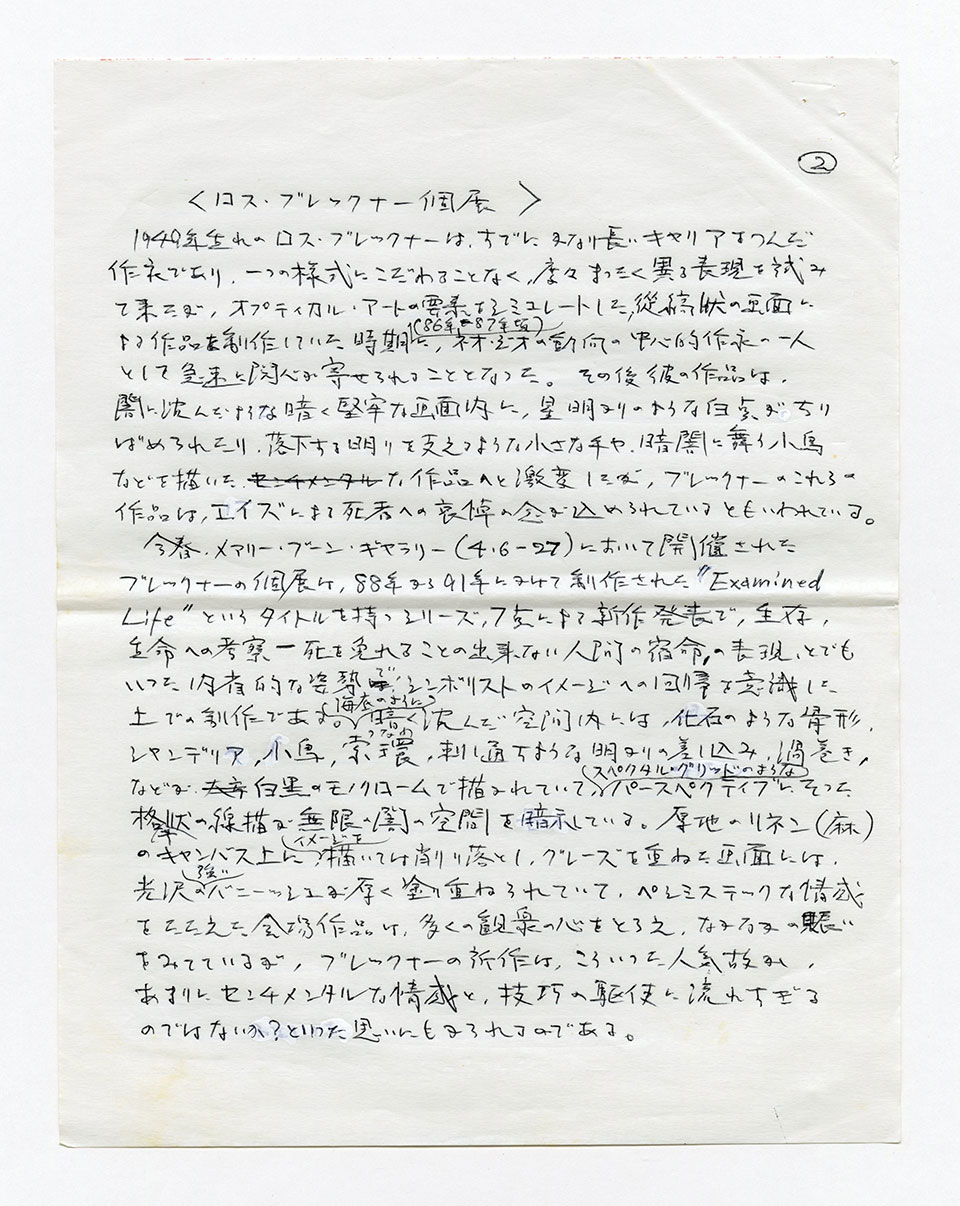 ②
〈ロス・ブレックナー個展〉
1949年生れのロス・ブレックナーは、すでにかなり長いキャリアをつんだ
作家であり、一つの様式にこだわることなく、度々まったく異る表現を試み
て来たが、オプティカル・アートの要素をシミュレートした、縦縞状の画面に
よる作品を制作していた時期(86年-87年頃)に、ネオ・ジオの動向の中心的作家の一人
として急速に関心が寄せられることとなった。その後彼の作品は、
闇に沈んだような暗く堅牢な画面内に、星明かりのような白点がちり
ばめられたり、落下する明りを支えるような小さな手や、暗闇に舞う小鳥
などを描いた、センチメンタルな作品へと激変したが、ブレックナーのこれらの
作品は、エイズによる死者への哀悼の念が込められているともいわれている。
今春、メアリー・ブーン・ギャラリー(4.6-27)において開催された
ブレックナーの個展は、88年から91年にかけて制作された"Examined
Life"というタイトルを持つシリーズ、7点による新作発表で、生存、
生命への考察―死を免れることの出来ない人間の宿命、の表現、とでも
いった内省的な姿勢で、シンボリストのイメージへの回帰を意識した
上での制作である。(海底のように)暗く沈んだ空間内には、化石のような骨形、
シャンデリア、小鳥、索環、刺し通すような明かりの差し込み、渦巻き、
などが、白黒のモノクロームで描かれていて、(スペクタル・グリッドのような)パースペクティブにそった
格状の線描が無限の闇の空間を暗示している。厚地のリネン(麻)
のキャンバス上に(イメージを)描いては削り落とし、グレーズを重ねた画面には、
光沢の(強い)バニーッシュが厚く塗り重ねられていて、ペシミステックな情感
をたたえた会場作品は、多くの観衆の心をとらえ、なかなかの賑い
をみせているが、ブレックナーの新作は、こういった人気故か、
あまりにセンチメンタルな情感と、技巧の駆使に流れすぎる
のではないか?といった思いにもかられるのである。